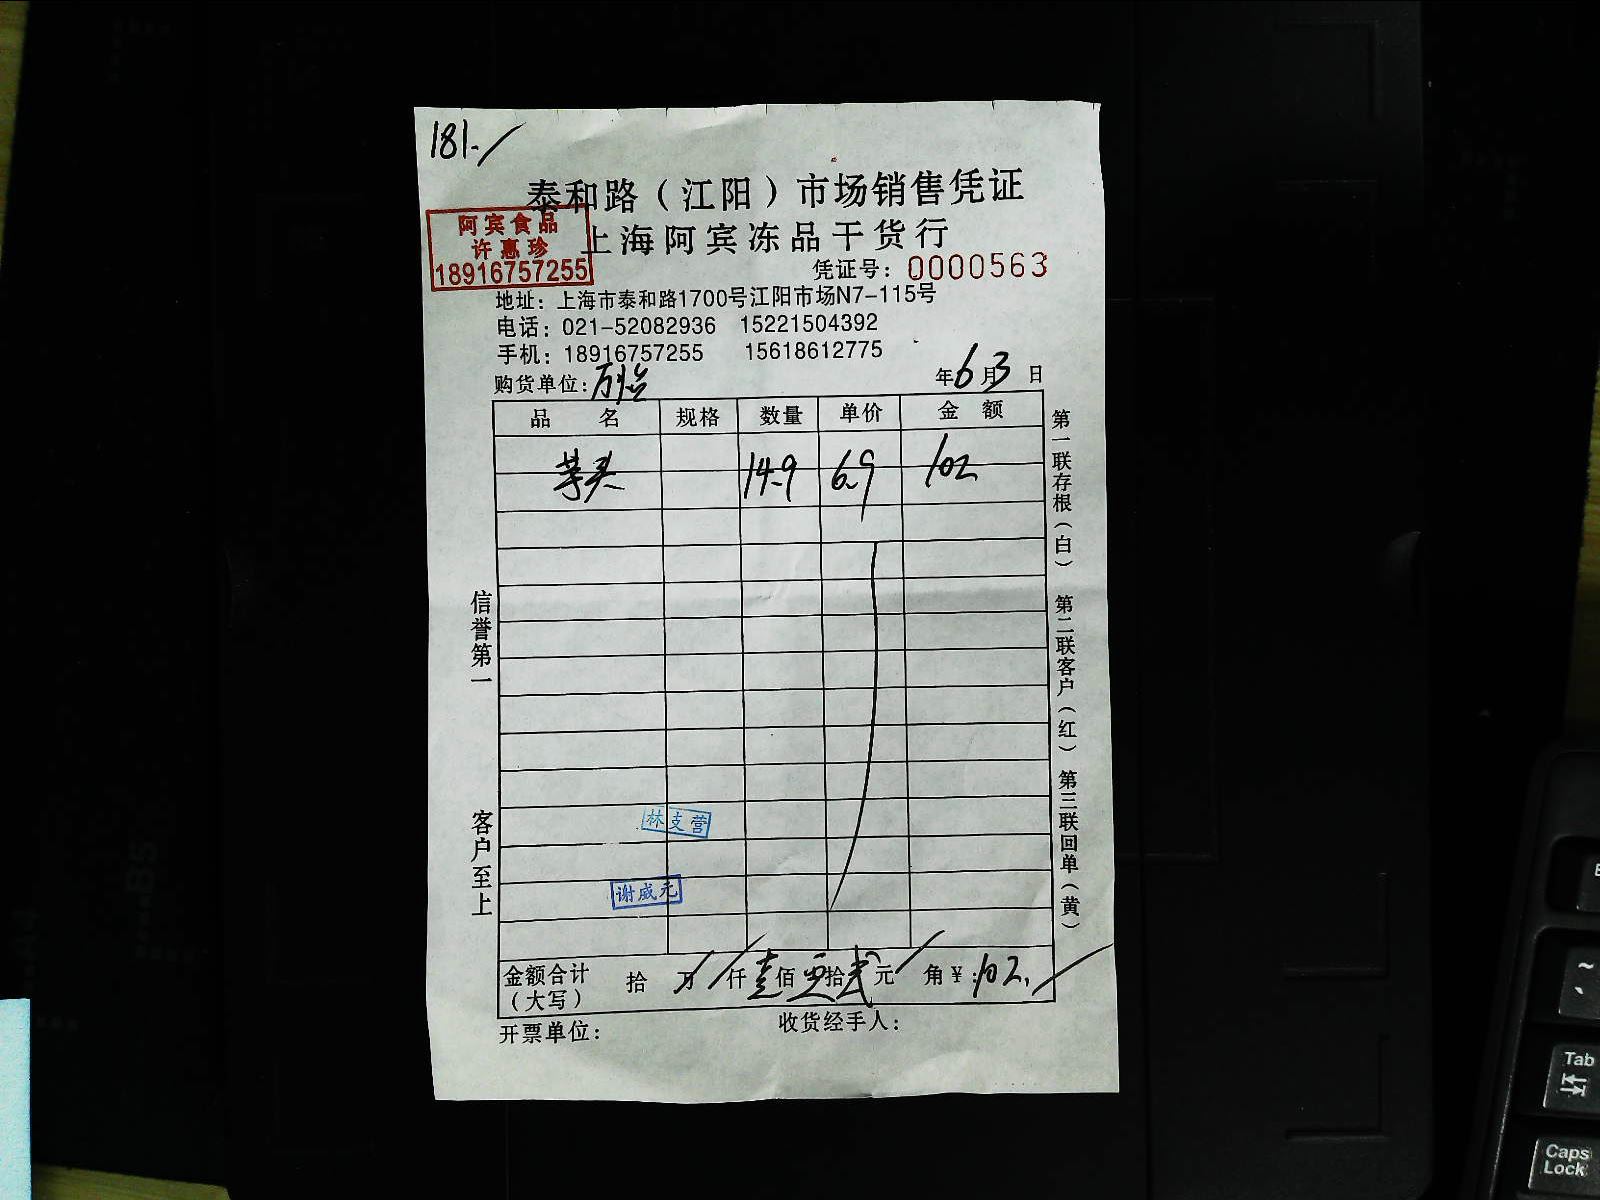 181.
泰和路（江阳）市场销售凭证
上海阿宾冻品干货行
阿宾食品
许惠珍
18916757255
凭证号：0000563
地址：上海市泰和路1700号江阳市场N7-115号
电话：021-52082936 15221504392
手机：18916757255 15618612775
购货单位：
年6月3日
品名 规格 数量 单价 金额
芋头 14.9 6.9 102
林支营
谢威元
金额合计（大写） 拾 万 仟 壹佰 零拾 贰元 角 ¥：102.
开票单位：
收货经手人：
信誉第一
客户至上
第一联存根（白） 第二联客户（红） 第三联回单（黄）
Tab
Caps
Lock